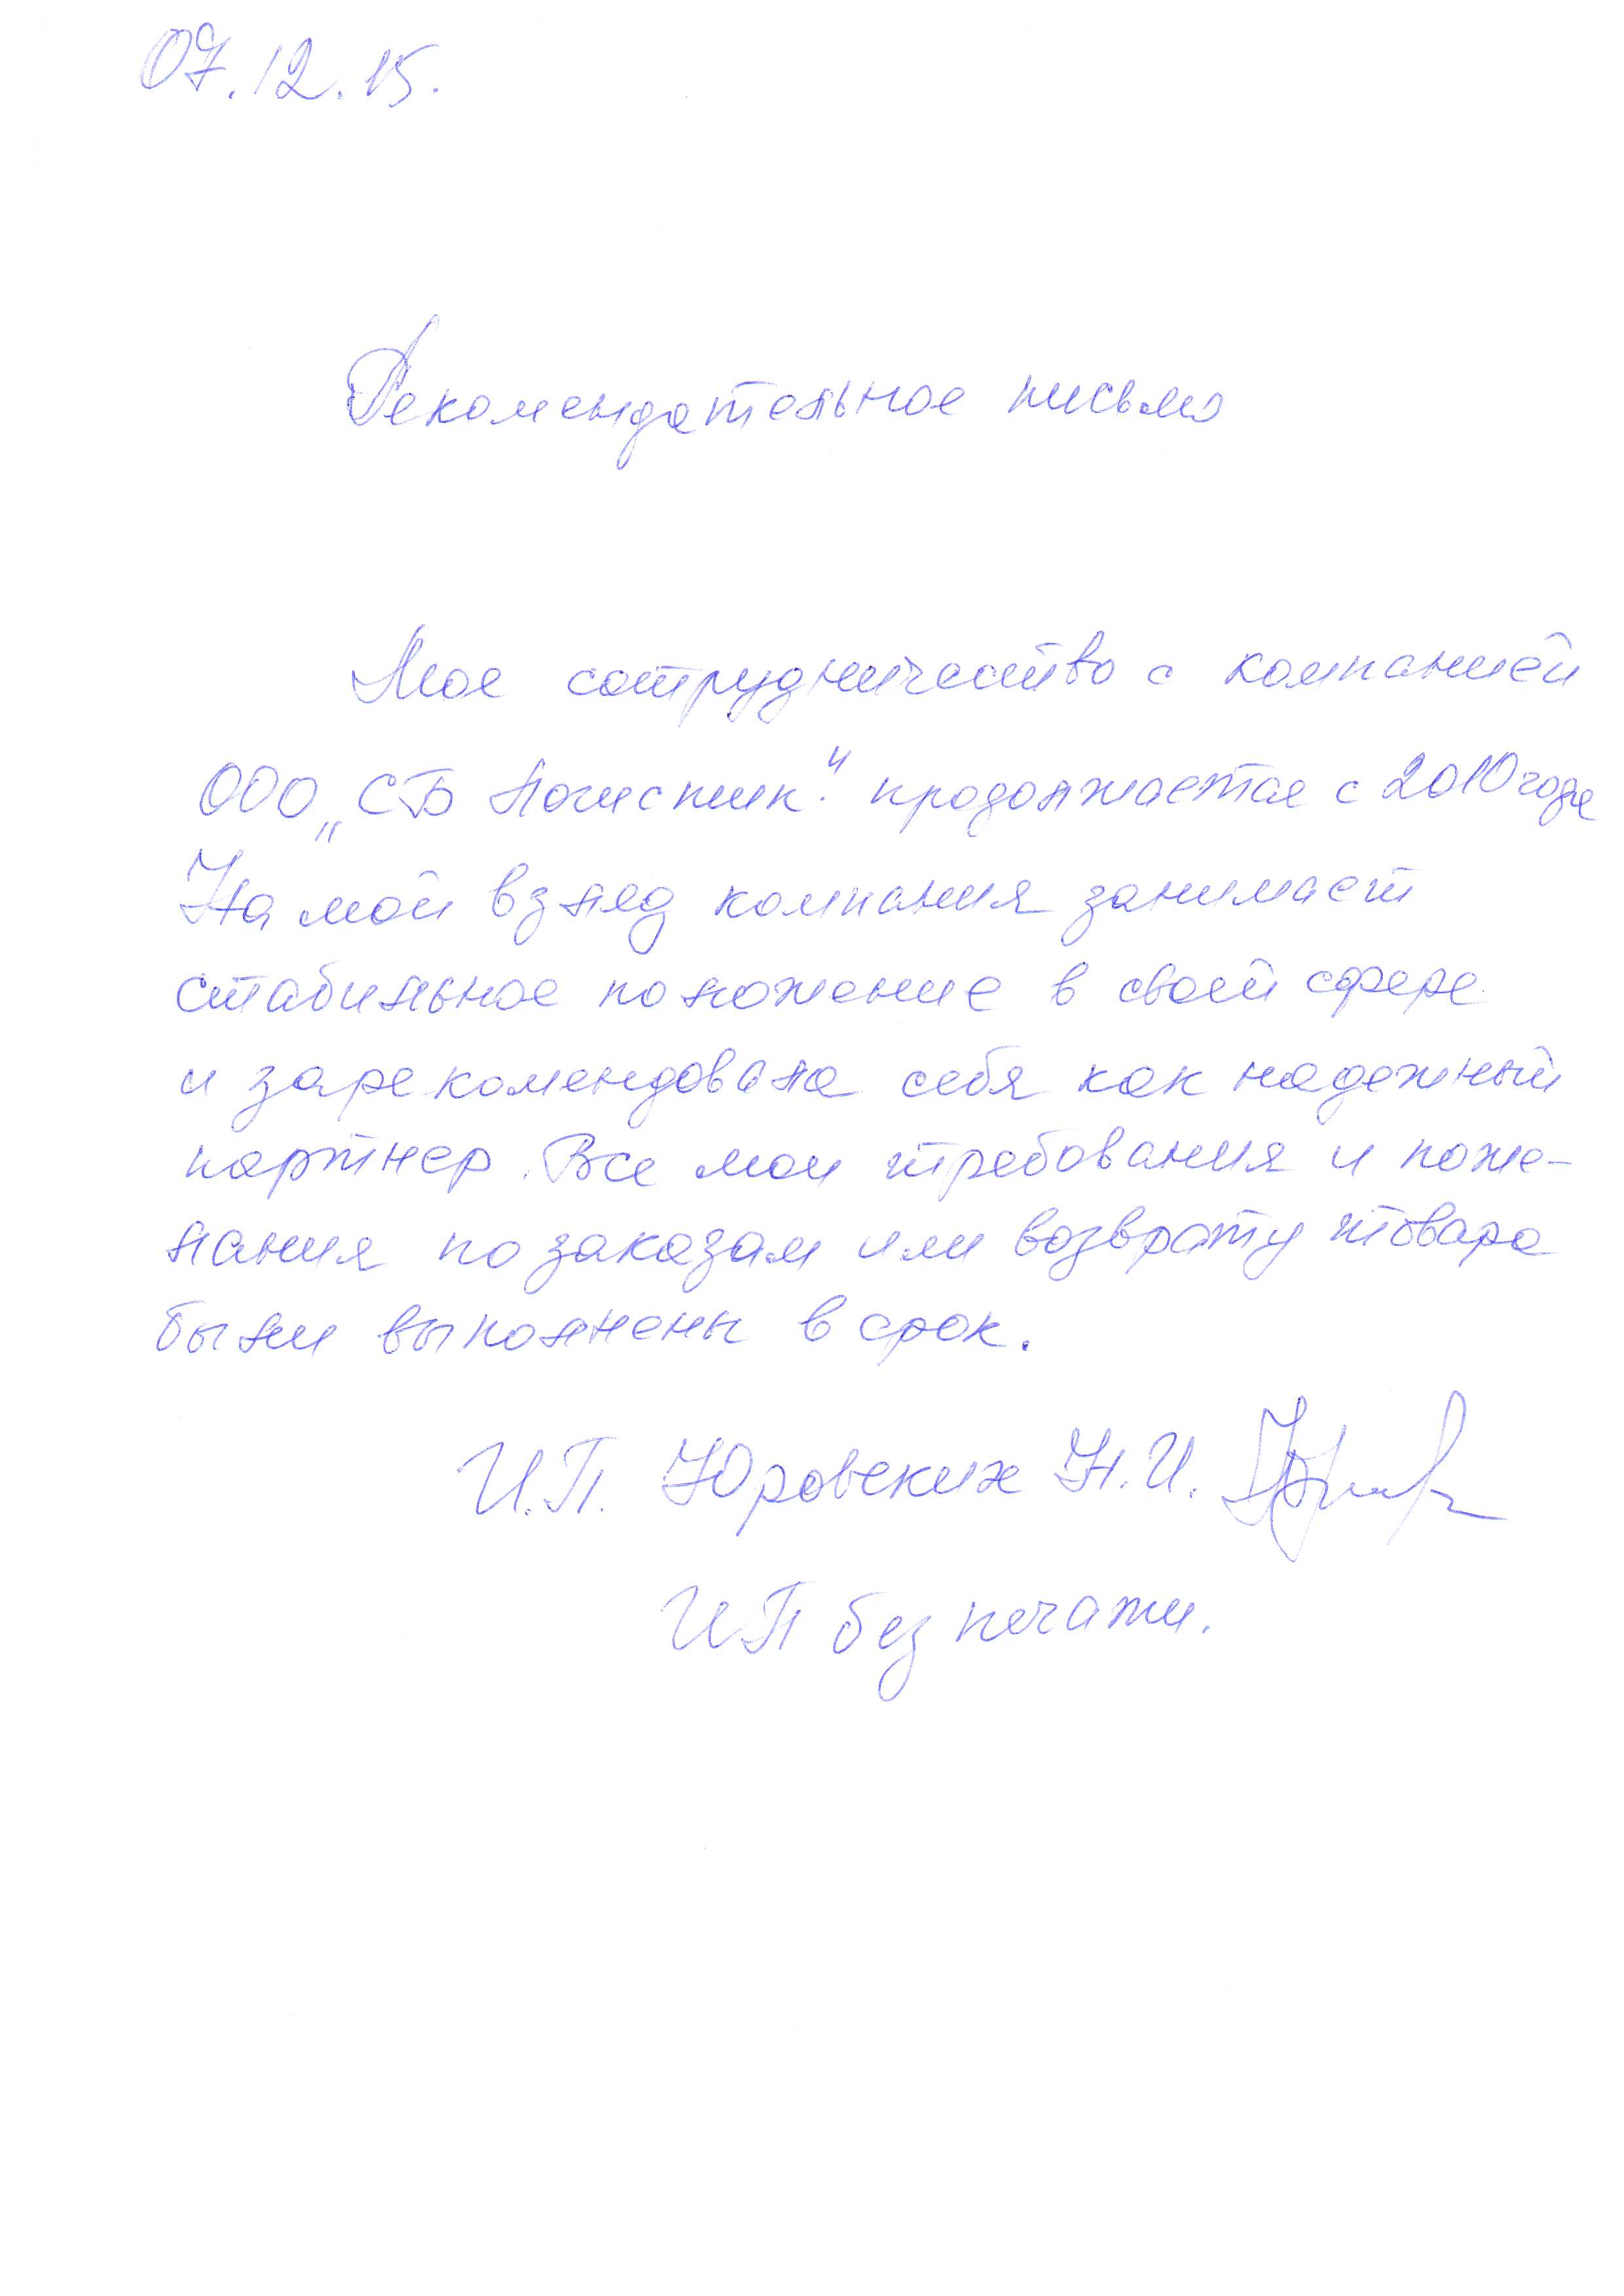 07.12.15.
Рекомендательное письмо
Мое сотрудничество с компанией
ООО „СБ Логистик." продолжается с 2010 года
На мой взгляд компания занимает
стабильное положение в своей сфере
и зарекомендовала себя как надежный
партнер. Все мои требования и поже-
лания по заказам или возврату товара
были выполнены в срок.
И.П. Юровских Н.И.
ИП без печати.